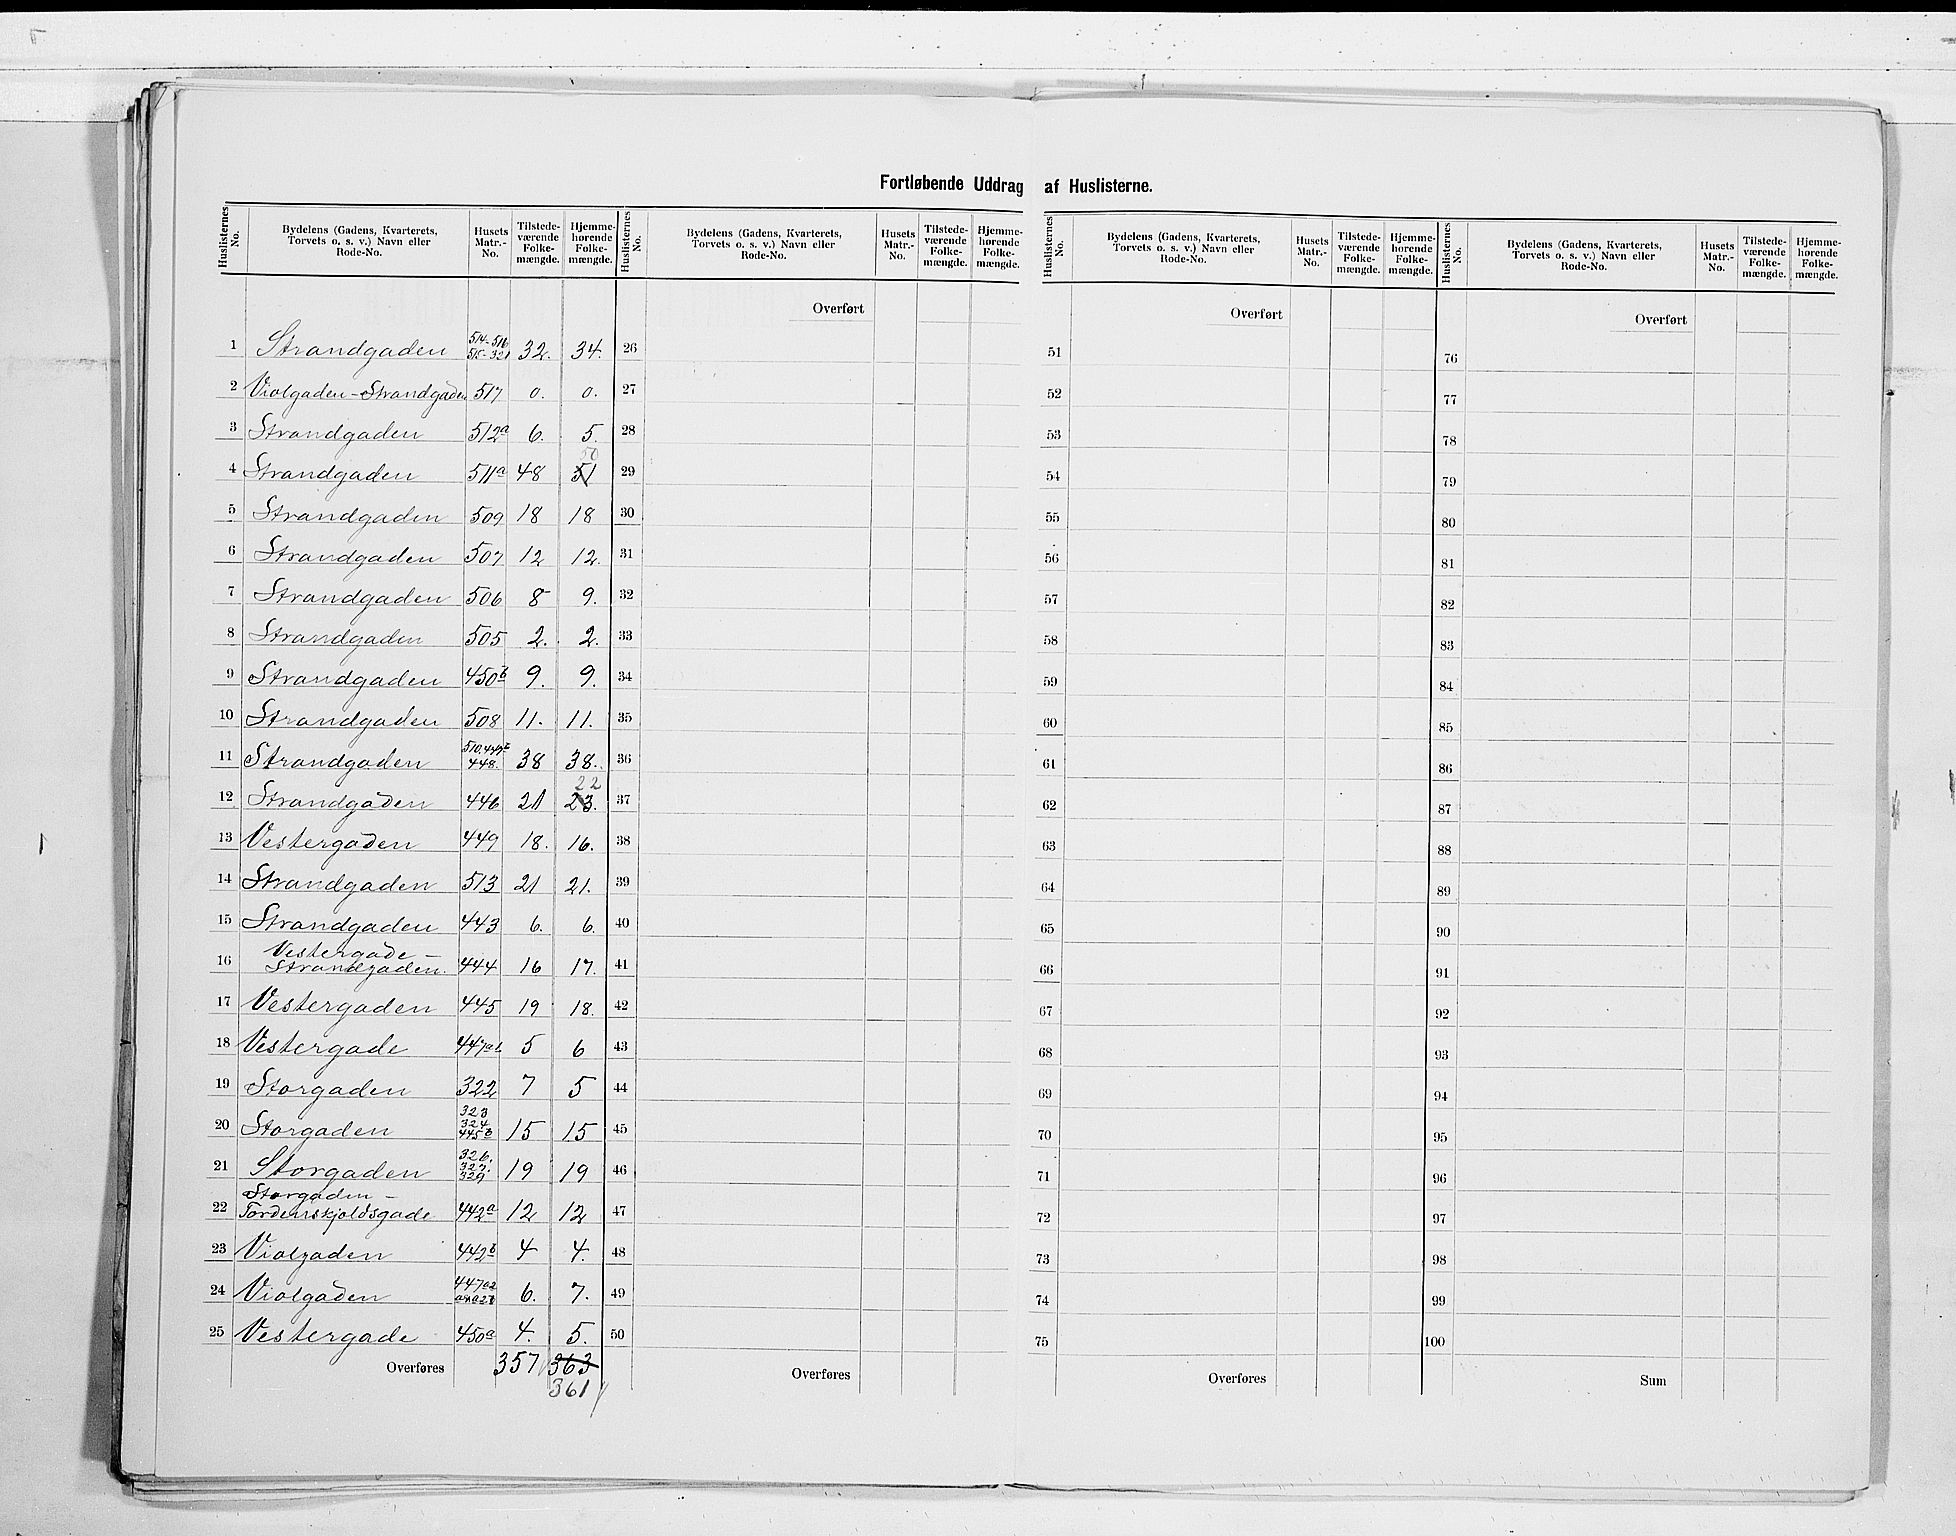 Fortløbende Uddrag af Huslisterne.
Huslisternes No. | Bydelens (Gadens, Kvarterets, Torvets o. s. v.) Navn eller Rode-No. | Husets Matr.-No. | Tilstedeværende Folkemængde. | Hjemmehørende Folkemængde.
Huslisternes No. | Bydelens (Gadens, Kvarterets, Torvets o. s. v.) Navn eller Rode-No. | Husets Matr.-No. | Tilstedeværende Folkemængde. | Hjemmehørende Folkemængde.
Huslisternes No. | Bydelens (Gadens, Kvarterets, Torvets o. s. v.) Navn eller Rode-No. | Husets Matr.-No. | Tilstedeværende Folkemængde. | Hjemmehørende Folkemængde.
Huslisternes No. | Bydelens (Gadens, Kvarterets, Torvets o. s. v.) Navn eller Rode-No. | Husets Matr.-No. | Tilstedeværende Folkemængde. | Hjemmehørende Folkemængde.
Overført Overført Overført
1 Strandgaden 514-516 515-321 32. 34. 26 51 76
2 Violgaden-Strandgaden 517 0. 0. 27 52 77
3 Strandgaden 512a 6. 5. 28 53 78
4 Strandgaden 511a 48 51 50 29 54 79
5 Strandgaden 509 18 18 30 55 80
6 Strandgaden 507 12 12. 31 56 81
7 Strandgaden 506 8 9. 32 57 82
8 Strandgaden 505 2. 2. 33 58 83
9 Strandgaden 450b 9. 9. 34 59 84
10 Strandgaden 508 11. 11. 35 60 85
11 Strandgaden 510. 448. 38 38. 36 61 86
12 Strandgaden 446 21 23. 22 37 62 87
13 Vestergaden 449 18. 16. 38 63 88
14 Strandgaden 513 21 21. 39 64 89
15 Strandgaden 443 6. 6. 40 65 90
16 Vestergade - Strandgaden. 444 16 17. 41 66 91
17 Vestergaden 445 19 18. 42 67 92
18 Vestergade 447a1 5 6 43 68 93
19 Storgaden 322 7 5 44 69 94
20 Storgaden 323 324 445b 15 15 45 70 95
21 Storgaden 326. 327. 329 19 19 46 71 96
22 Storgaden - Tordenskjoldsgade 442a 12 12 47 72 97
23 Violgaden 442b 4 4. 48 73 98
24 Violgaden 447a2 6. 7. 49 74 99
25 Vestergade 450a 4. 5. 50 75 100
Overføres 357 363 Overføres Overføres Sum
361